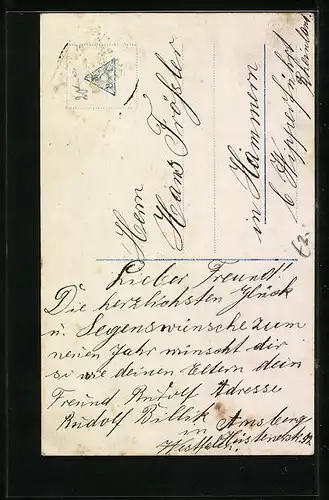 Herrn
Hans Fröhler
in Hämmern
b. Wipperfürth
Rheinland
Lieber Freund!!
Die herzlichsten Glück
u. Segenswünsche zum
neuen Jahr wünscht dir
so wie deinen Eltern dein
Freund Rudolf Adresse
Rudolf Billik Arnsberg
in
Westfalen